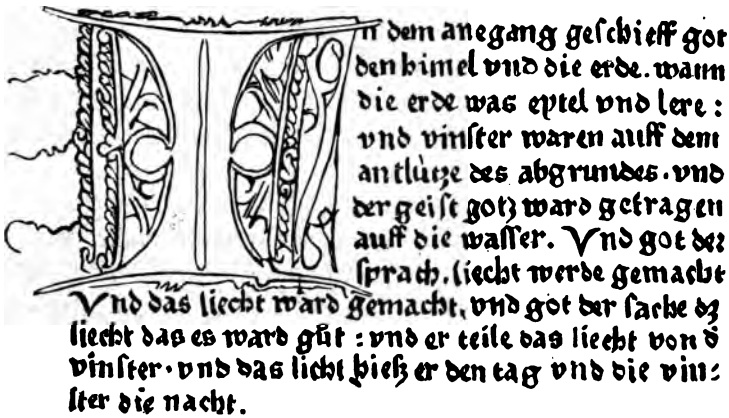 In dem anegang geschieff got
den himel vnd die erde. wann
die erde was eytel vnd lere :
vnd vinster waren auff dem
antlùtze des abgrundes . vnd
der geist gotz ward getragen
auff die wasser . Vnd got der
sprach . liecht werde gemacht
Vnd das liecht ward gemacht, vnd got der sache dz
liecht das es ward gůt : vnd er teile das liecht von d̕
vinster . vnd das licht hiesz er den tag vnd die vin⸗
ster die nacht .